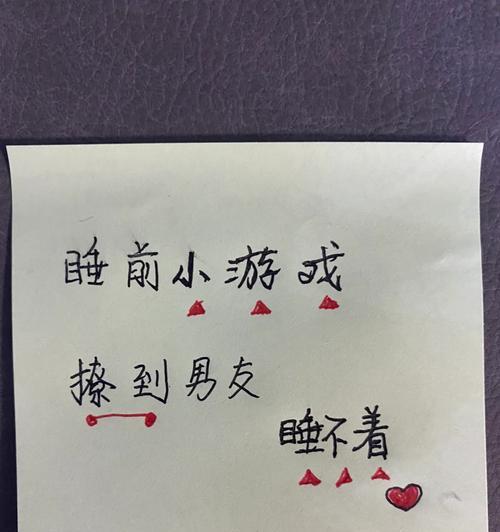 睡前小游戏
撩到男友
睡不着